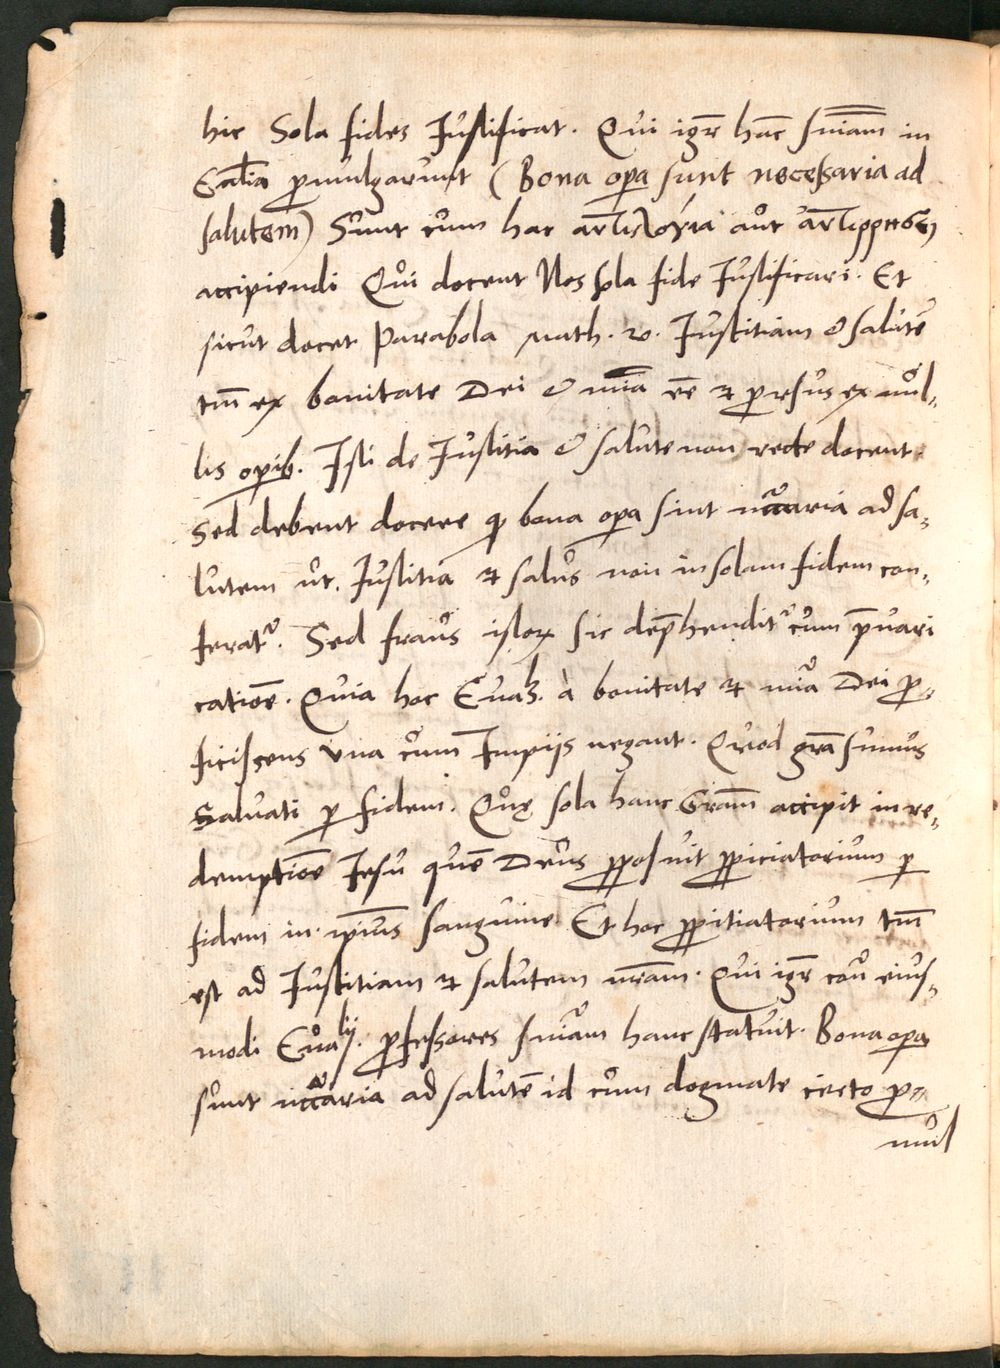 hic Sola fides Iustificat. Qui igr̄ hāc sn̄iam in
Ecclīa p̱mulgarunt (Bona op̱a sunt necessaria ad
salutem) Sunt cum hac ἀντιλογία aut
accipiendi Qui docent Nos sola fide Iustificari. Et
sicut docet Parabola Math. 20. Iustitiam & salutē
tm̄ ex bonitate Dei & mīa eē et prorsus ex nul-
lis op̱ib. Isti de Iustitia & salute non recte docent.
Sed debent docere ꝙ bona op̱a sint nccāria ad sa-
lutem ut Iustitia et salus non in solam fidem con-
feratr. Sed fraus istoꝝ sic dep̄henditr cum p̄uari
catiōe. Quia hoc Euāḡ. à bonitate et mīa Dei ꝓ-
ficiscens vna cum Impijs negant. Quod gr̄a sumus
Saluati ꝑ fidem. Quę sola hanc Gr̄am accipit in re-
demptiōe Iesu quē Deus ꝓposuit ꝓpiciatorium ꝑ
fidem in ip̄ius sanguine Et hoc ꝓpitiatorium tm̄
est ad Iustitiam et salutem nr̄am. Qui igr̄ cōn eius-
modi Euālij. ꝓfessores sn̄iam hanc statuit. Bona op̱a
sunt nccāria ad salutē id cum dogmate certo ꝓ-
mul